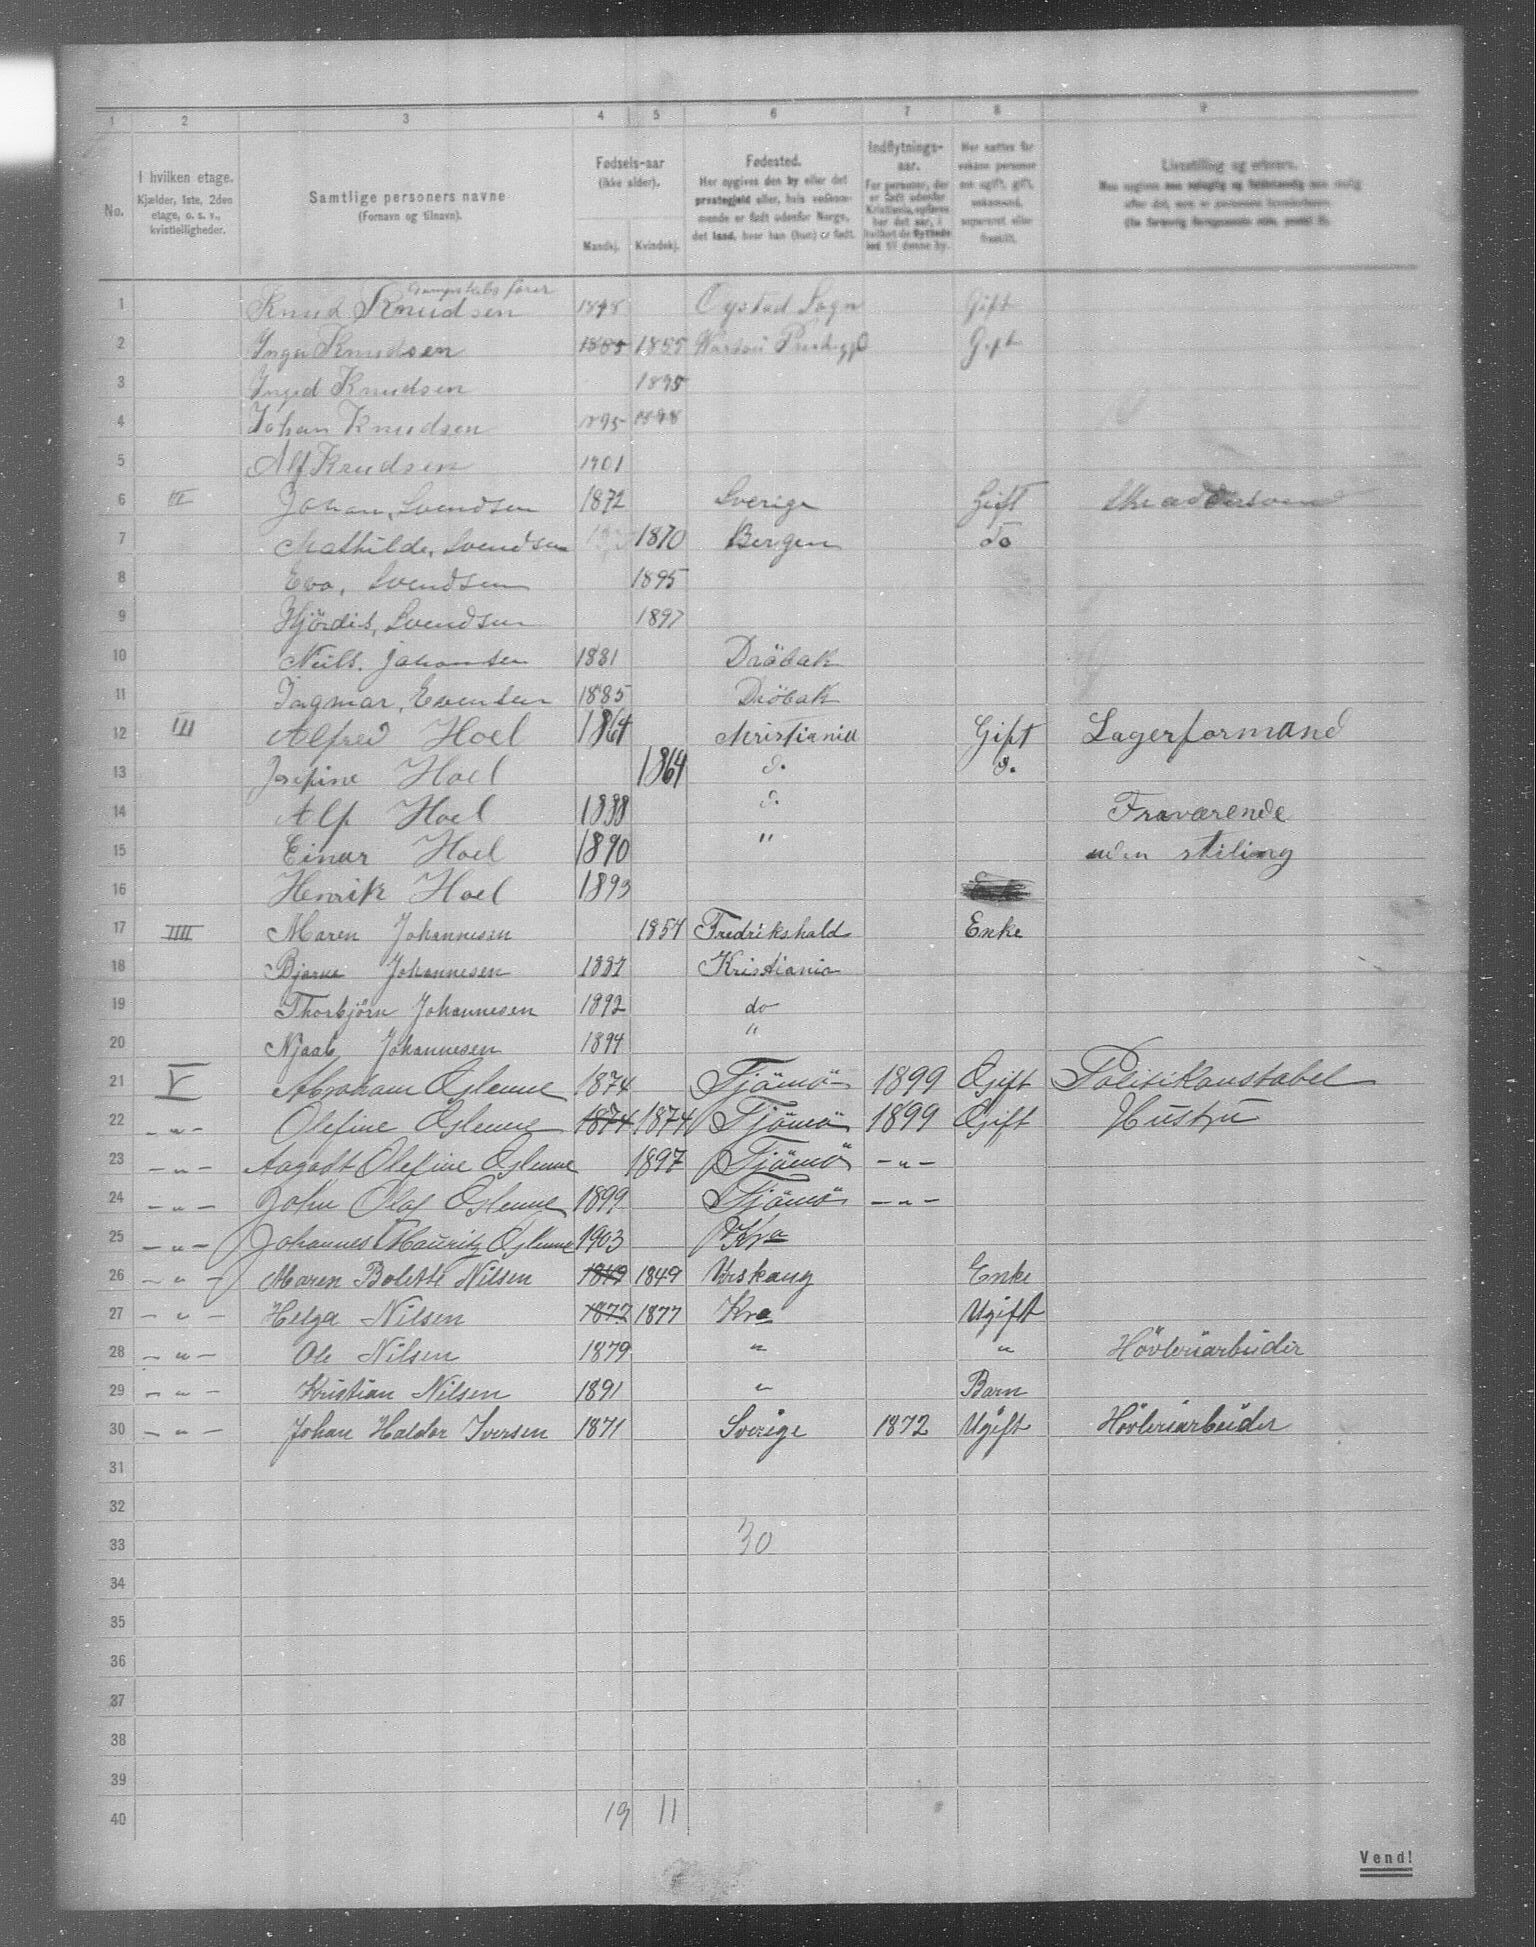 1 2 3 4 5 6 7 8 9
No.
I hvilken etage.
Kjælder, 1ste, 2den
etage, o. s. v.,
kvistleiligheder.
Samtlige personers navne
(Fornavn og tilnavn).
Fødsels-aar
(ikke alder).
Mandkj. Kvindekj.
Fødested.
Her opgives den by eller det
præstegjeld eller, hvis vedkom-
mende er født udenfor Norge,
det land, hvor han (hun) er født.
Indflytnings-
aar.
For personer, der
er født udenfor
Kristiania, opføres
her det aar, i
hvilket de flyttede
ind til denne by.
Her sættes for
voksne personer
om ugift, gift,
enkemand,
separeret eller
fraskilt.
Livsstilling og erhverv.
1 Knud Knudsen Gift
2 Inga Knudsen 1855 1855 Gift
3 Knudsen 1895
4 Johan Knudsen 1895 1898
5 Alf Knudsen 1901
6 III Johan, Svendsen 1872 Sverige Gift
7 Mathilde, Svendsen 1870 Bergen do
8 Eva, Svendsen 1895
9 Hjördis, Svendsen 1897
10 Niils. Johansen 1881 Dröbak
11 Ingmar, Evensen 1885 Dröbak
12 III Alfred Hoel 1864 Kristiania Gift Lagerformand
13 Josefine Hoel 1864 d. d.
14 Alf Hoel 1888 d. Fraværende
15 Einar Hoel 1890 " uden stiling
16 Henrik Hoel 1893
17 IIII Maren Johannesen 1854 Fredrikshald Enke
18 Bjarne Johannesen 1887 Kristiania
19 Thorbjörn Johannesen 1892 do
20 Njaal Johannesen 1894 "
21 V Abraham Øglenne 1874 Tjömö 1899 Gift Politikonstabel
22 - " - Olefine Øglenne 1874 1874 Tjömö 1899 Gift Hustru
23 - " - Aagodt Olefine Øglenne 1897 Tjömö - " -
24 - " - John Olaf Øglenne 1899 Tjömö - " -
25 - " - Johannes Mauritz Øglenne 1903 Kra
26 - " - Maren Bolette Nilsen 1849 1849 Urskaug Enke
27 - " - Helga Nilsen 1877 1877 Kra Ugift
28 - " - Ole Nilsen 1879 " " Hövleriarbeider
29 - " - Kristian Nilsen 1891 " Barn
30 - " - Johan Haldor Iversen 1871 Sverige 1872 Ugift Hövleriarbeider
31
32
33 30
34
35
36
37
38
39
40 19 11
Vend!